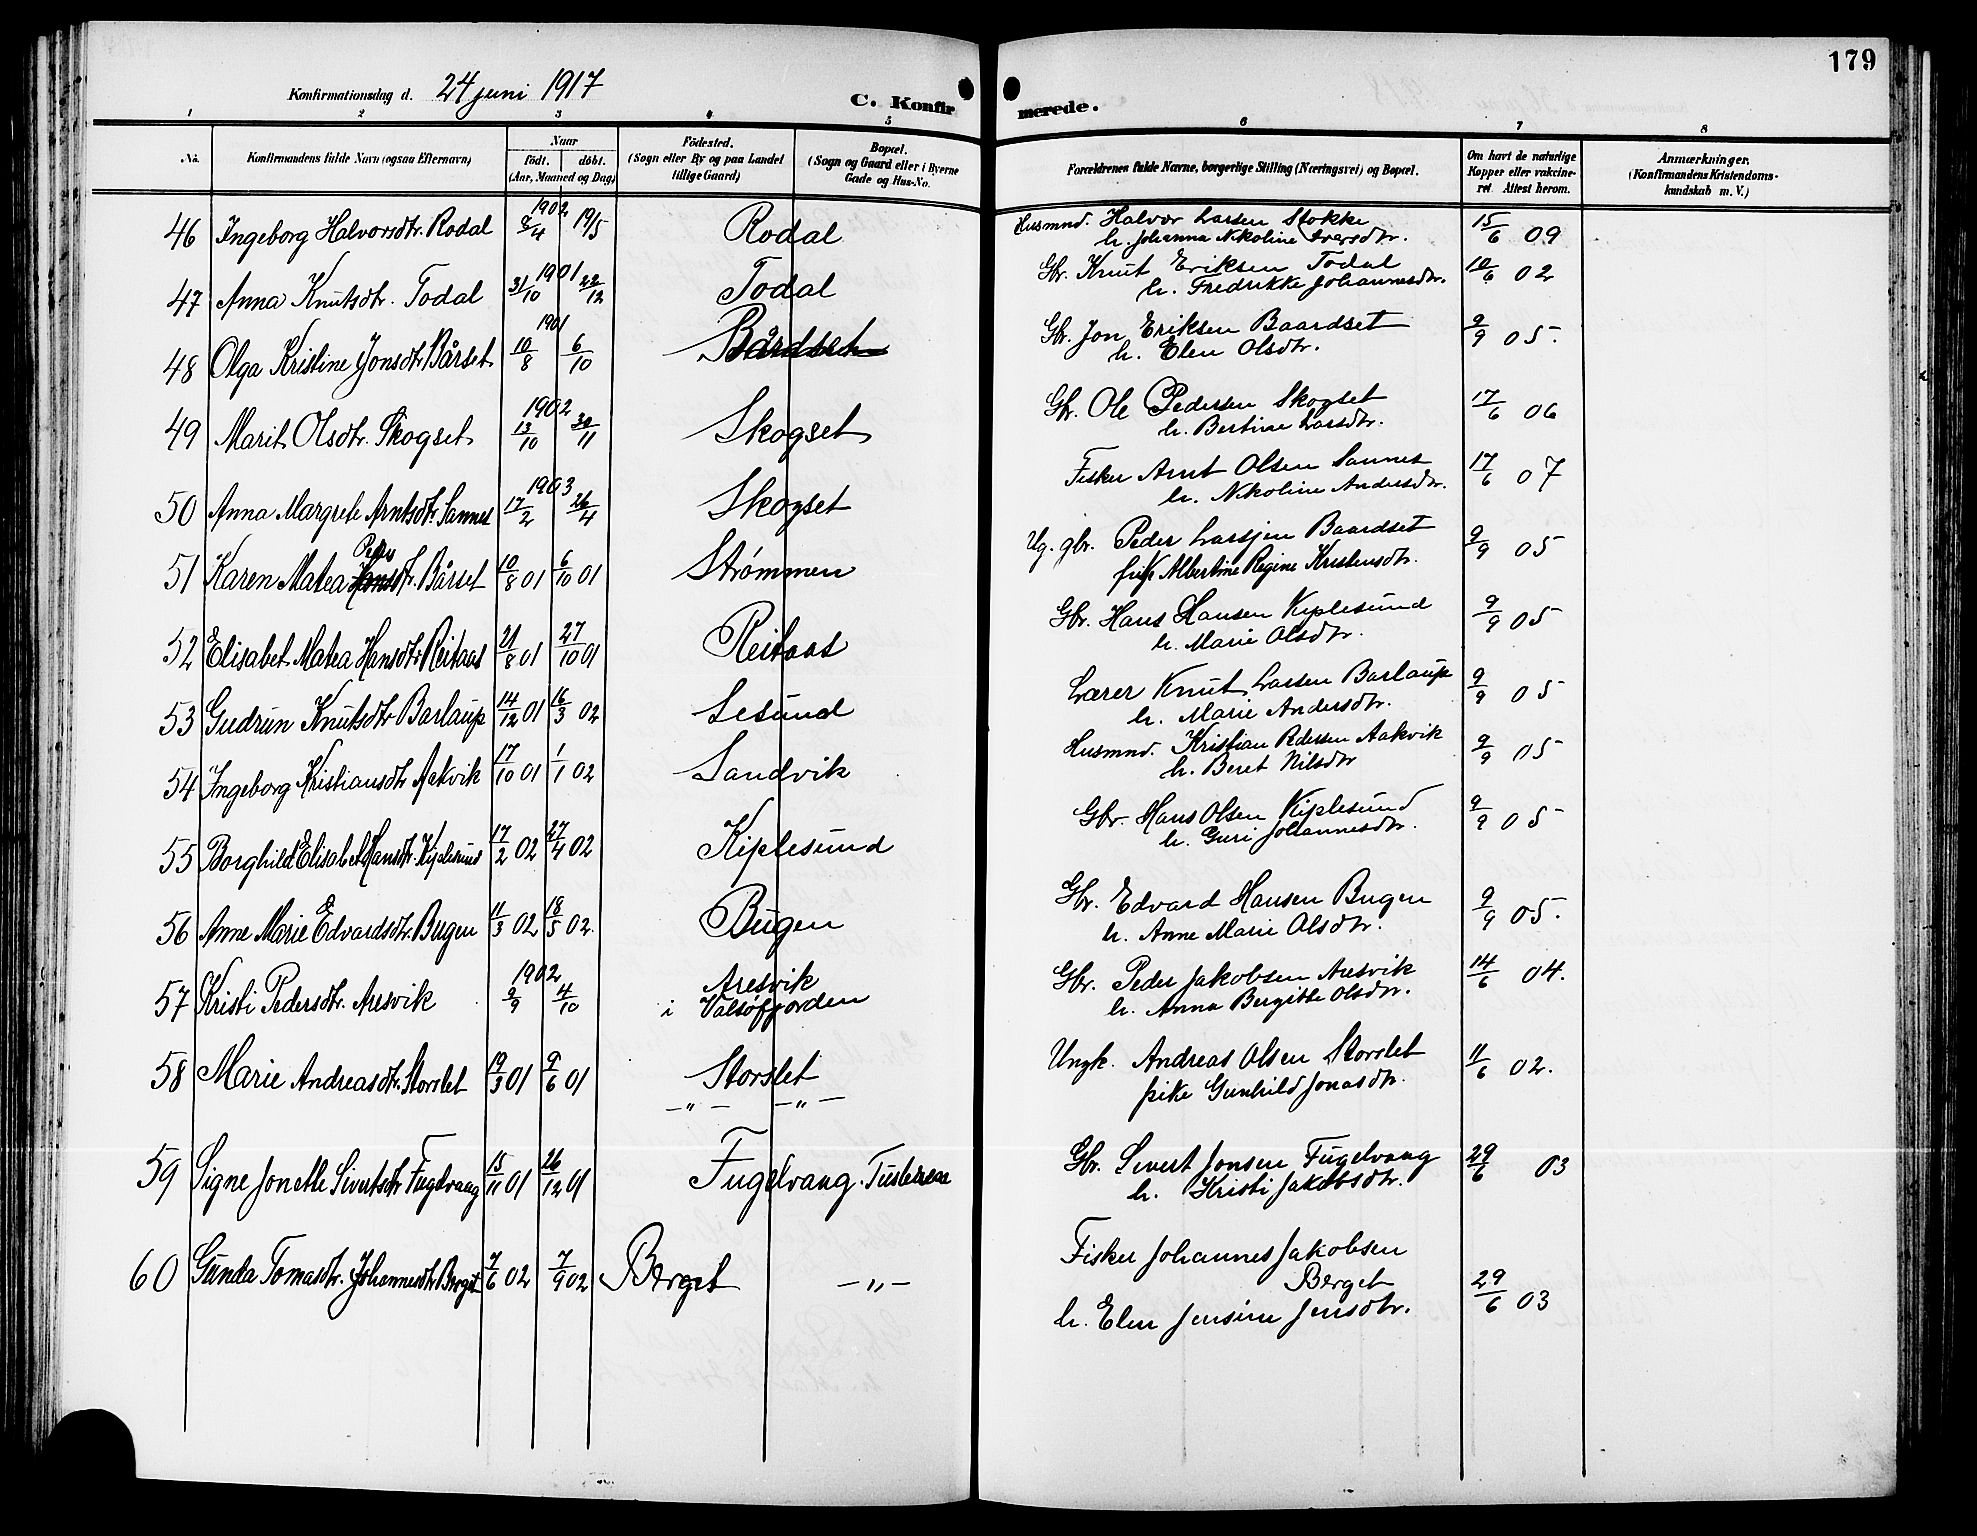 179
Konfirmationsdag d. 24 juni 1917
C. Konfirmerede.
1 2 3 4 5 6 7 8
No.
Konfirmandens fulde Navn (ogsaa Efternavn)
Naar
födt. döbt.
(Aar, Maaned og Dag)
Födested.
(Sogn eller By og paa Landet
tillige Gaard)
Bopæl.
(Sogn og Gaard eller i Byerne
Gade og Hus-No.
Forældrenes fulde Navne, borgerlige Stilling (Næringsvei) og Bopæl.
Om havt de naturlige
Kopper eller vakcine-
ret. Attest herom.
Anmærkninger.
(Konfirmandens Kristendoms-
kundskab m. V.)
46 Ingeborg Halvorsdtr. Rodal 1902 8/4 19/5 Rodal Husmnd. Halvor Larsen Stokke 15/6 09
h. Johanna Nikoline Iversdtr.
47 Anna Knutsdtr. Todal 1901 31/10 22/12 Todal Gbr. Knut Eriksen Todal 10/6 02
h. Fredrikke Johannesdtr.
48 Olga Kristine Jonsdtr. Bårset 1901 10/8 6/10 Bårdset Gbr. Jon Eriksen Baardset 9/9 05.
h. Elen Olsdtr.
49 Marit Olsdtr. Skogset 1902 13/10 30/11 Skogset Gbr. Ole Pedersen Skogset 17/6 06
h. Bertine Larsdtr.
50 Anna Margrete Arntsdtr. Sannes 1903 17/2 26/4 Skogset Fisker Arnt Olsen Sannes 17/6 07
h. Nikoline Andersdtr.
51 Karen Matea Peders Hansdtr. Bårset 10/8 01 6/10 01 Strømmen Ug. gbr. Peder Larsen Baardset 9/9 05
pike Albertine Regine Kristensdtr.
52 Elisabet Matea Hansdtr. Reitaas 21/8 01 27/10 01 Reitaas Gbr. Hans Hansen Kiplesund 9/9 05
h. Marie Olsdtr.
53 Gudrun Knutsdtr. Barlaup 14/12 01 16/3 02 Lesund Lærer Knut Larsen Barlaup 9/9 05
h. Marie Andersdtr.
54 Ingeborg Kristiansdtr Aakvik 17/10 01 1/1 02 Sandvik Husmnd. Kristian Pedersen Aakvik 9/9 05
h. Beret Nilsdtr
55 Borghild Elisabet Hansdtr. Kiplesund 17/2 02 27/4 02 Kiplesund Gbr. Hans Olsen Kiplesund 9/9 05
h. Guri Johannesdtr.
56 Anne Marie Edvardsdtr. Bugen 11/3 02 18/5 02. Bugen Gbr. Edvard Hansen Bugen 9/9 05.
h. Anne Marie Olsdtr.
57 Kristi Pedersdtr. Aresvik 1902 9/9 4/10 Aresvik
i Valsøfjorden Gbr. Peder Jakobsen Aresvik 14/6 04.
h. Anna Bergitte Olsdtr.
58 Marie Andreasdtr. Storslet 19/3 01 9/6 01 Storslet Ungk. Andreas Olsen Storslet 11/6 02.
–"– –"– pike Gunhild Jonasdtr.
59 Signe Jonette Sivertsdtr Fugelvaag 15/11 01 26/12 01 Fugelvaag. Tusteren Gbr. Sivert Jonsen Fugelvaag 29/6 03
h. Kristi Jakobsdtr.
60 Gunda Tomasdtr. Johannesdtr Berget 7/6 02 7/9 02 Berget –"– Fisker Johannes Jakobsen
Berget 29/6 03
h. Elen Jensine Jensdtr.